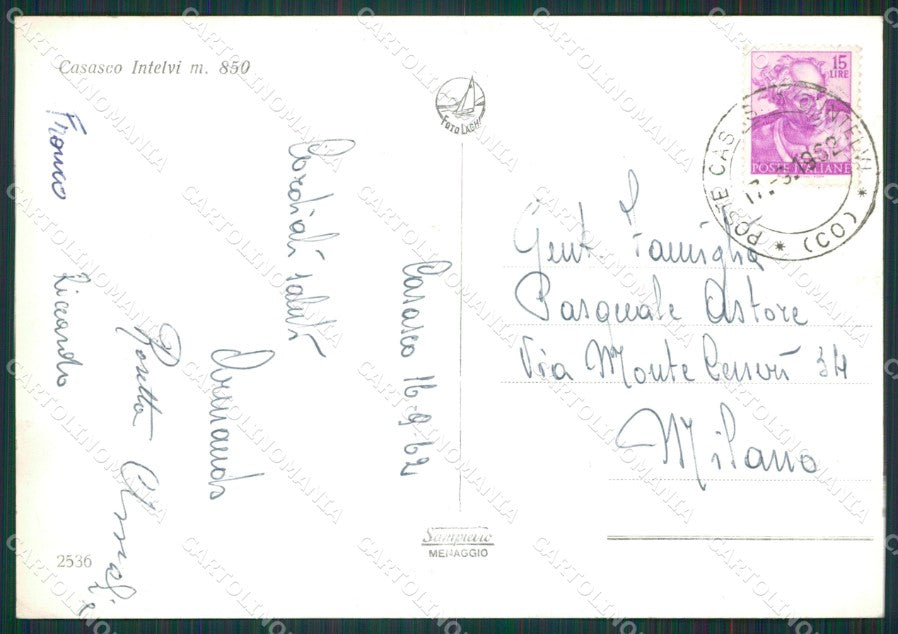 Casasco Intelvi m. 850
FOTO LAGHI
15
LIRE
POSTE ITALIANE
POSTE CASASCO D'INTELVI
17.-9.1962
* (CO) *
Casasco 16-9-62
Cordiali saluti
Armando
Rosetta
Riccardo
Franco
Gent. Famiglia
Pasquale Astore
Via Monte Ceneri 34
Milano
Sampietro
MENAGGIO
2536
CARTOLINOMANIA